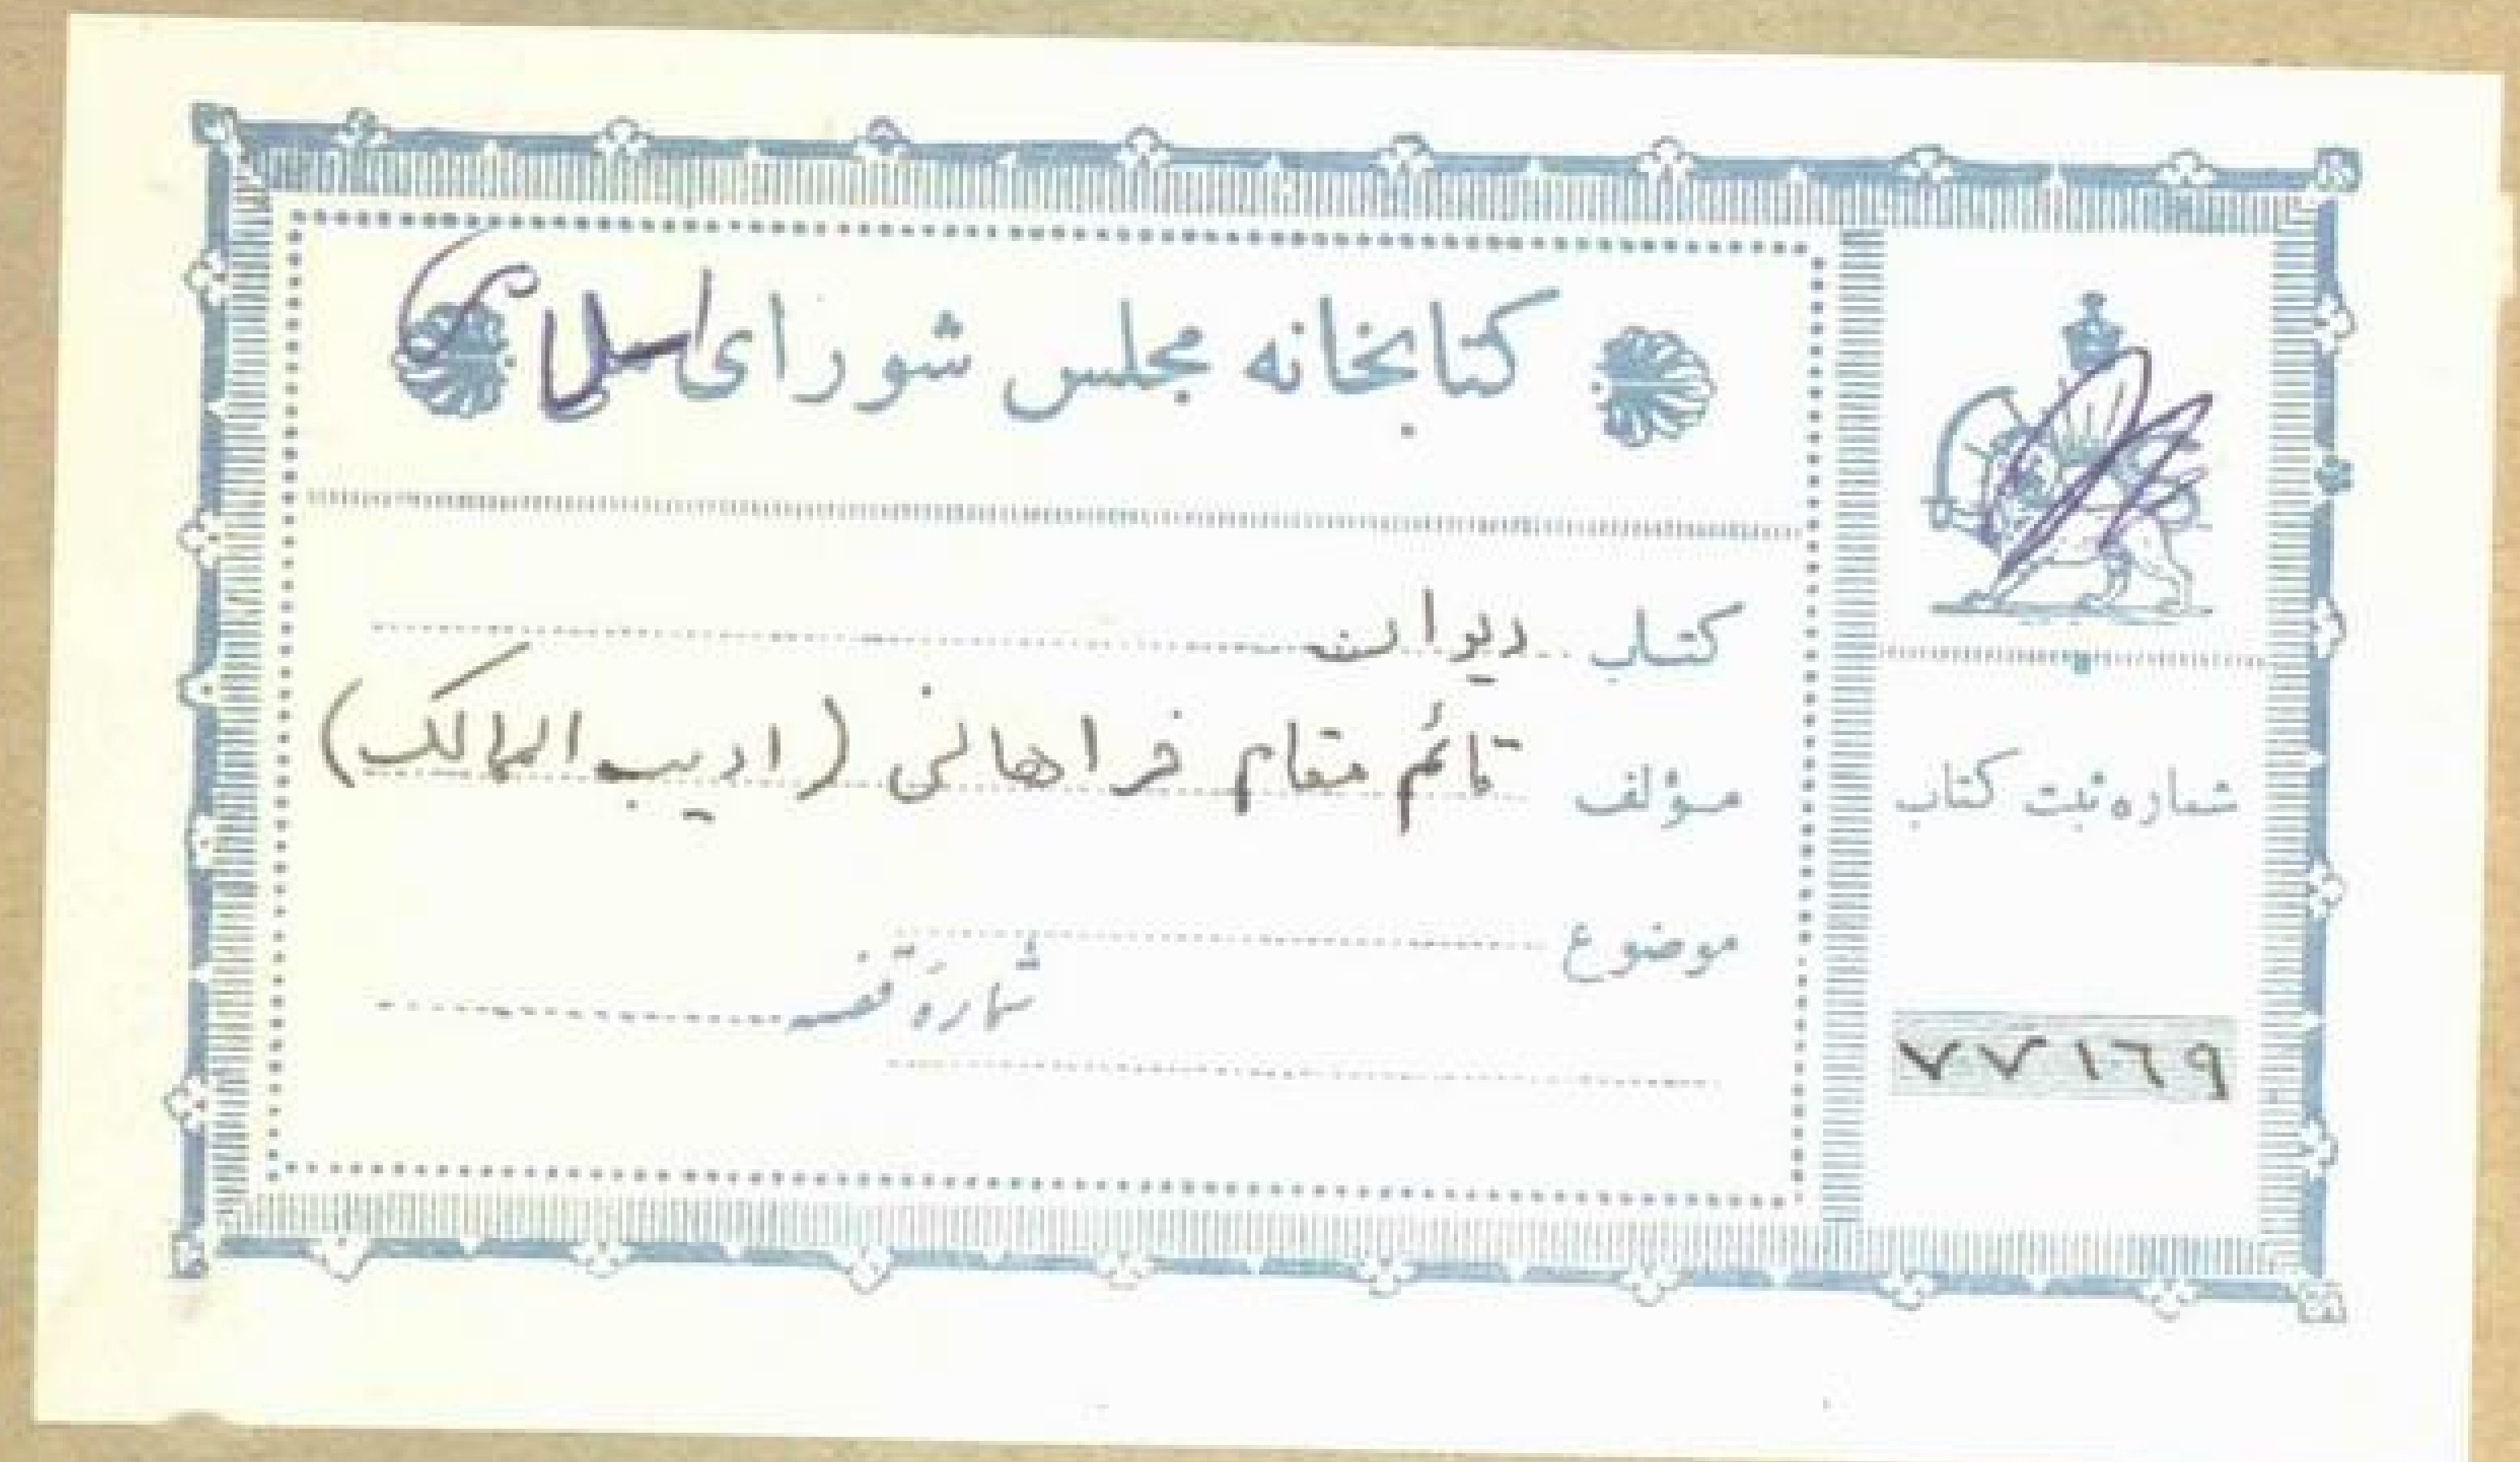 کتابخانه مجلس شورای اسلامی
کتاب دیوان
مؤلف قائم مقام فراهانی (ادیب الممالک)
موضوع
شمارهٔ قفسه
شماره ثبت کتاب
۷۷۱۶۹